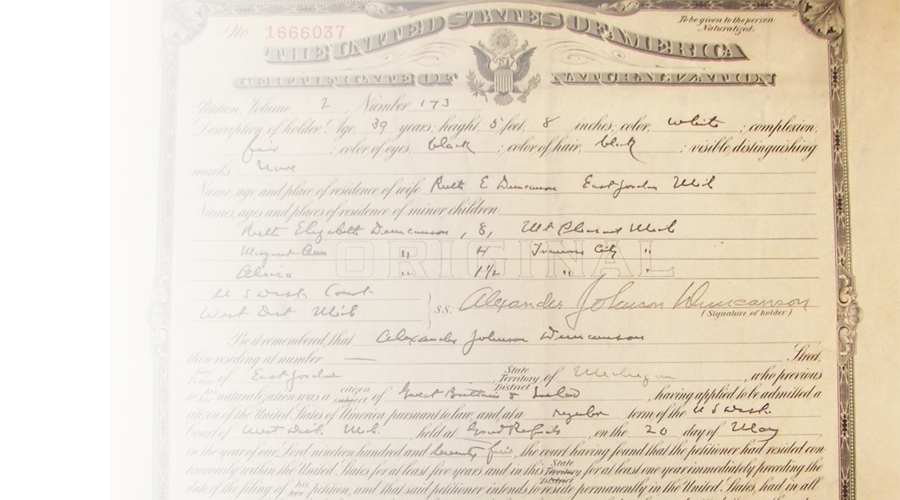 To be given to the person
Naturalized.
No. 1666037
THE UNITED STATES OF AMERICA
CERTIFICATE OF NATURALIZATION
Petition, Volume 2 Number 173
Description of holder: Age, 39 years; height, 5 feet, 8 inches; color, White ; complexion,
fair ; color of eyes, black ; color of hair, black ; visible distinguishing
marks, None
Name, age and place of residence of wife Ruth E Duncanson East Jordan Mich
Names, ages and places of residence of minor children
Ruth Elizabeth Duncanson, 8, Mt Pleasant Mich
Margaret Ann " 4 Traverse City "
" 1 1/2 " "
ORIGINAL
U S Dist Court
West Dist Mich } s.s: Alexander Johnson Duncanson
(Signature of holder)
Be it remembered that Alexander Johnson Duncanson
then residing at number — Street,
City Town of East Jordan State Territory District of Michigan, who previous
to his her naturalization was a citizen subject of Great Brittain & Ireland, having applied to be admitted a
citizen of the United States of America pursuant to law, and at a regular term of the U S Dist.
Court of West Dist. Mich. held at Grand Rapids on the 20 day of May
in the year of our Lord nineteen hundred and twenty five, the court having found that the petitioner had resided con
tinuously within the United States for at least five years and in this State Territory District for at least one year immediately preceding the
date of the filing of his her petition, and that said petitioner intends to reside permanently in the United States, had in all